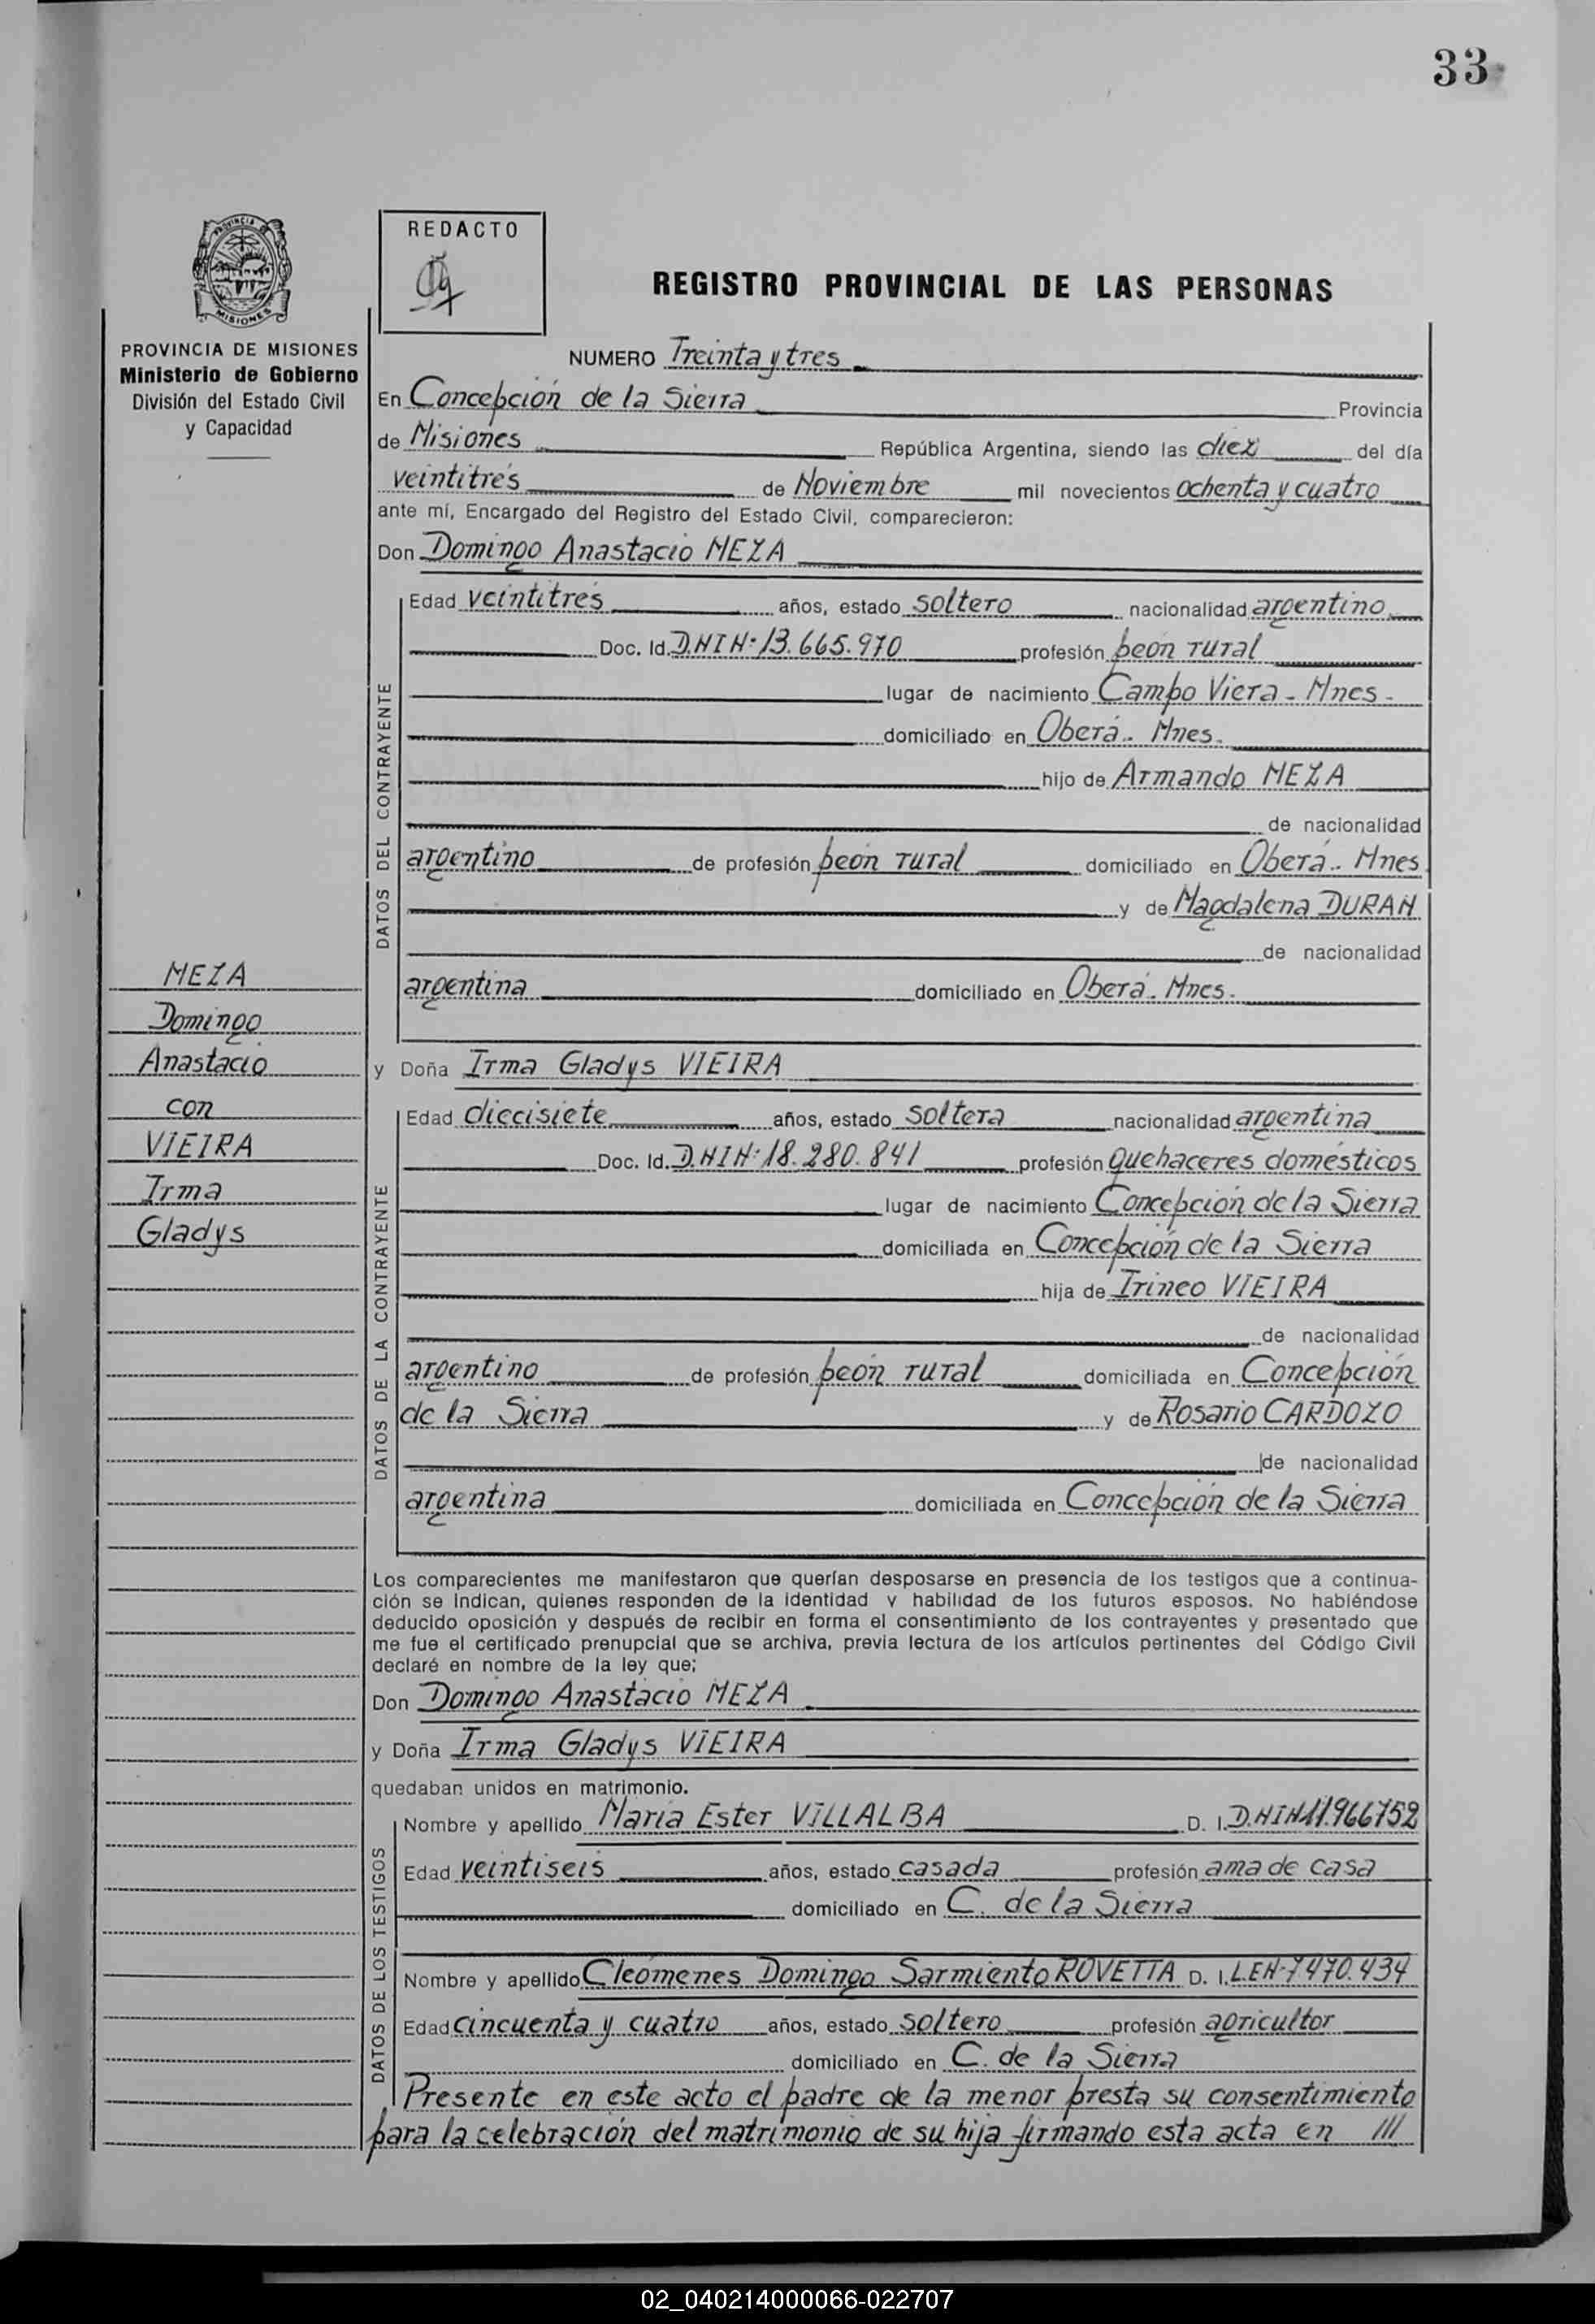 33
PROVINCIA DE MISIONES
REDACTO
REGISTRO PROVINCIAL DE LAS PERSONAS
PROVINCIA DE MISIONES
Ministerio de Gobierno
División del Estado Civil
y Capacidad
NUMERO Treinta y tres
En Concepción de la Sierra Provincia
de Misiones República Argentina, siendo las diez del día
veintitrés de Noviembre mil novecientos ochenta y cuatro
ante mí, Encargado del Registro del Estado Civil, comparecieron:
Don Domingo Anastacio MEZA
DATOS DEL CONTRAYENTE
Edad veintitrés años, estado soltero nacionalidad argentino
Doc. Id. D.N.I Nº 13.665.970 profesión peón rural
lugar de nacimiento Campo Viera - Mnes -
domiciliado en Oberá - Mnes.
hijo de Armando MEZA
de nacionalidad
argentino de profesión peón rural domiciliado en Oberá - Mnes
y de Magdalena DURAN
de nacionalidad
argentina domiciliado en Oberá - Mnes.
MEZA
Domingo
Anastacio
con
VIEIRA
Irma
Gladys
y Doña Irma Gladys VIEIRA
DATOS DE LA CONTRAYENTE
Edad diecisiete años, estado soltera nacionalidad argentina
Doc. Id. D.N.I Nº 18.280.841 profesión quehaceres domésticos
lugar de nacimiento Concepción de la Sierra
domiciliada en Concepción de la Sierra
hija de Irineo VIEIRA
de nacionalidad
argentino de profesión peón rural domiciliada en Concepción
de la Sierra y de Rosario CARDOZO
de nacionalidad
argentina domiciliada en Concepción de la Sierra
Los comparecientes me manifestaron que querían desposarse en presencia de los testigos que a continua-
ción se indican, quienes responden de la identidad y habilidad de los futuros esposos. No habiéndose
deducido oposición y después de recibir en forma el consentimiento de los contrayentes y presentado que
me fue el certificado prenupcial que se archiva, previa lectura de los artículos pertinentes del Código Civil
declaré en nombre de la ley que;
Don Domingo Anastacio MEZA
y Doña Irma Gladys VIEIRA
quedaban unidos en matrimonio.
DATOS DE LOS TESTIGOS
Nombre y apellido María Ester VILLALBA D. I. D.N.I Nº 11.966752
Edad veintiseis años, estado casada profesión ama de casa
domiciliado en C. de la Sierra
Nombre y apellido Cleómenes Domingo Sarmiento ROVETTA D. I. L.E Nº 7.470.434
Edad cincuenta y cuatro años, estado soltero profesión agricultor
domiciliado en C. de la Sierra
Presente en este acto el padre de la menor presta su consentimiento
para la celebración del matrimonio de su hija firmando esta acta en ///
02_040214000066-022707